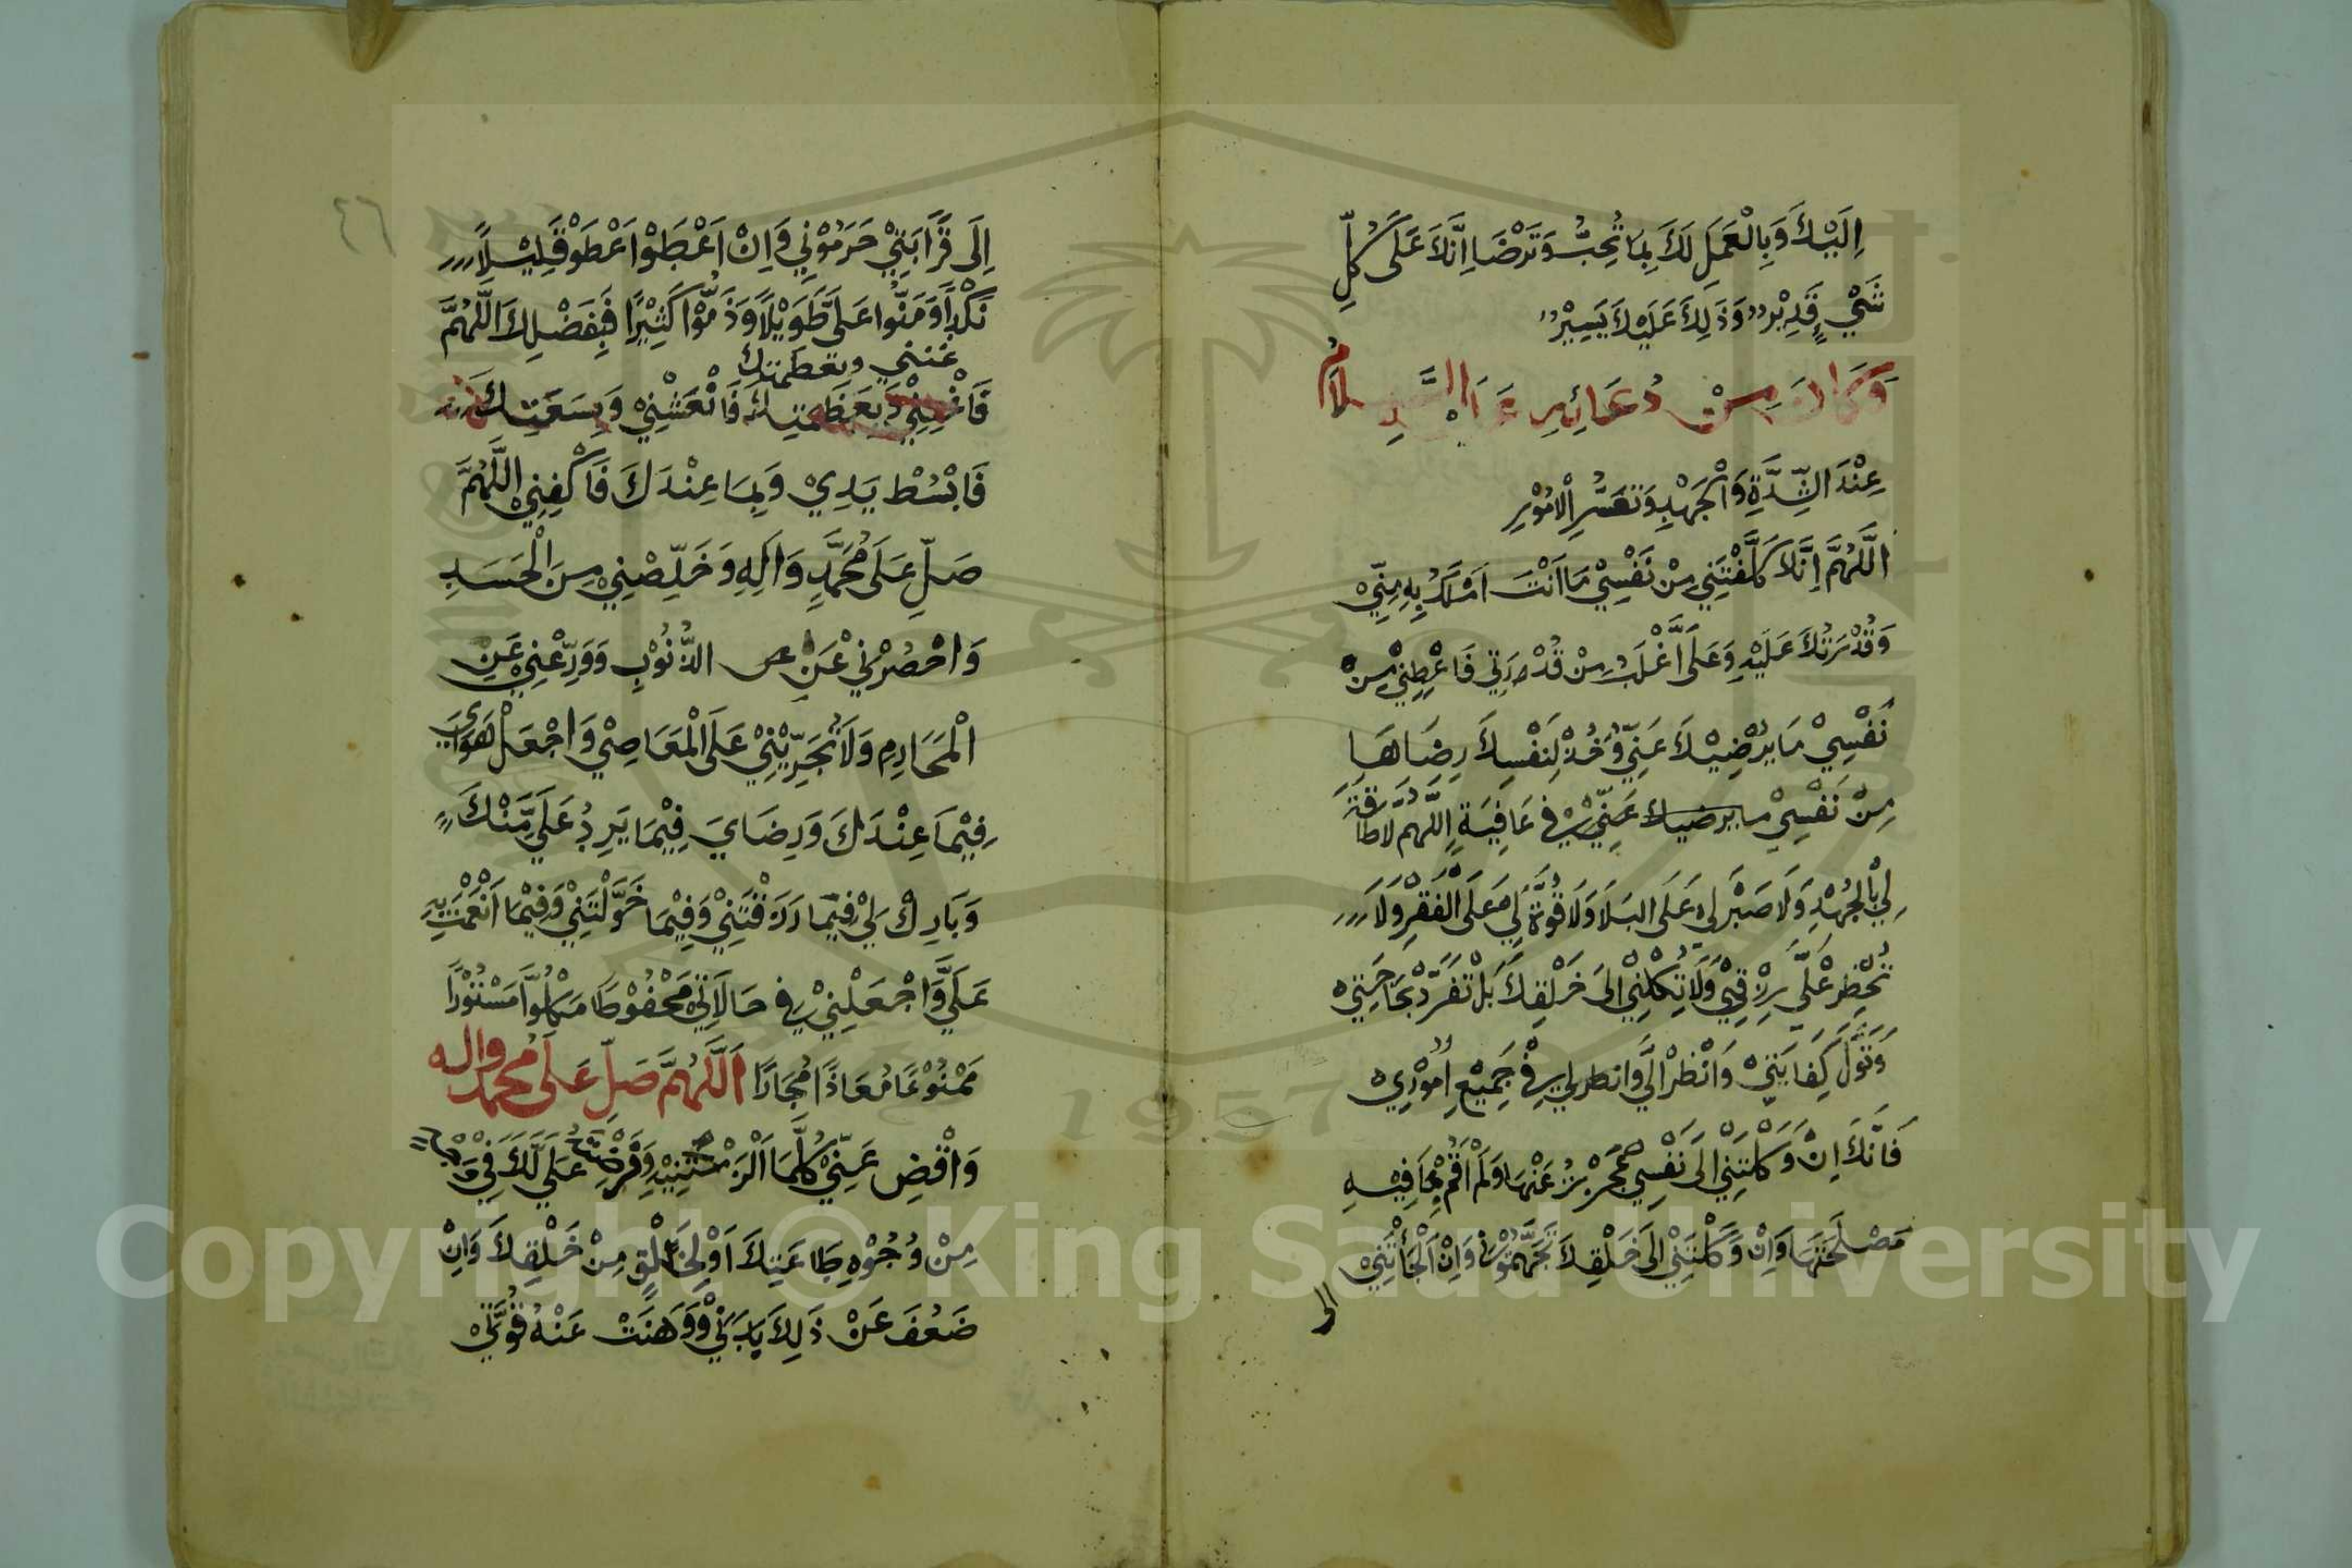 اِلَيْكَ وَبِالْعَمَلِ لَكَ بِمَا تُحِبُّ وَتَرْضَا اِنَّكَ عَلَى كُلِّ
شَيْءٍ قَدِيْر وَذَلِكَ عَلَيْكَ يَسِيْر
وَكَانَ مِنْ دُعَائِهِ عَلَيْهِ السَّلَامُ
عِنْدَ الشِّدَّةِ وَالْجَهْدِ وَتَعَسُّرِ الْامُوْرِ
اللَّهُمَّ اِنَّكَ كَلَّفْتَنِي مِنْ نَفْسِيْ مَا اَنْتَ اَمْلَكُ بِهِ مِنِّيْ
وَقُدْرَتُكَ عَلَيْهِ وَعَلَى اَغْلَبُ مِنْ قُدْرَتِي فَاعْطِنِيْ مِنْ
نَفْسِيْ مَا يُرْضِيْكَ عَنِّي وَخُذْ لِنَفْسِكَ رِضَاهَا
مِنْ نَفْسِيْ ما يرضيك عَنِّيْ فِي عَافِيَةٍ اللهم لا طَاقَةَ
لِي بِالْجُهْدِ وَلَا صَبْرَ لِي عَلَى البَلَا وَلَا قُوَّةَ لِي عَلَى الْفَقْرِ وَلَا
تُحْظِرْ عَلَيَّ رِزْقِيْ وَلَا تَكِلْنِيْ اِلَى خَلْقِكَ بَلْ تَفَرَّدْ بِحَاجَتِي
وَتَوَلَّ كِفَايَتِيْ وَانْظُرْ اِلَيَّ وَانظر لي فِيْ جَمِيْعِ اُمُوْرِي
فَاِنَّكَ اِنْ وَكَلْتَنِيْ اِلَى نَفْسِيْ عَجَزْتُ عَنْهَا وَلَمْ اُقِمْ مَا فِيْهِ
مَصْلَحَتُهَا وَاِنْ وَكَلْتَنِيْ اِلَى خَلْقِكَ تَجَهَّمُوْنِي وَاِنْ اَلْجَأْتَنِيْ
الى
٤٦
اِلَى قَرَابَتِيْ حَرَمُوْنِي وَاِنْ اَعْطَوْا اَعْطَوْ قَلِيْلًا
نَكْدًا وَمَنُّوا عَلَيَّ طَوِيْلًا وَذَمُّوْا كَثِيْرًا فَبِفَضْلِكَ اللَّهُمَّ
غنني وبعظمتك
فَاغْنِنِيْ وَبِعَظَمَتِكَ فَانْعَشْنِيْ وَبِسَعَتِكَ
فَابْسُطْ يَدِيْ وَبِمَا عِنْدَكَ فَاكْفِنِيْ اللَّهُمَّ
صَلِّ عَلَى مُحَمَّدٍ وَآلِهِ وَخَلِّصْنِيْ مِنَ الْحَسَدِ
وَاحْصُرْنِيْ عَنِ الذُّنُوْبِ وَوَرِّعْنِيْ عَنِ
الْمَحَارِمِ وَلَا تُجَرِّيْنِيْ عَلَى الْمَعَاصِيْ وَاجْعَلْ هَوَايَ
فِيْمَا عِنْدَكَ وَرِضَايَ فِيْمَا يَرِدُ عَلَيَّ مِنْكَ
وَبَارِكْ لِيْ فِيْمَا رَزَقْتَنِيْ وَفِيْمَا خَوَّلْتَنِيْ وَفِيْمَا اَنْعَمْتَ بِهِ
عَلَيَّ وَاجْعَلْنِيْ فِي حَالَاتِي مَحْفُوْظًا مَكْلُوًّا مَسْتُوْرًا
مَمْنُوْعًا مُعَاذًا مُجَارًا اَللَّهُمَّ صَلِّ عَلَى مُحمد واله
وَاقْضِ عَنِّيْ كُلَّمَا اَلْزَمْتَنِيْهِ وَفَرَضْتَهُ عَلَيَّ لَكَ فِيْ
مِنْ وُجُوْهِ طَاعَتِكَ اَوْ لِخَلْقٍ مِنْ خَلْقِكَ وَاِنْ
ضَعُفَ عَنْ ذَلِكَ بَدَنِيْ وَوَهَنَتْ عَنْهُ قُوَّتِيْ
1957
Copyright © King Saud University